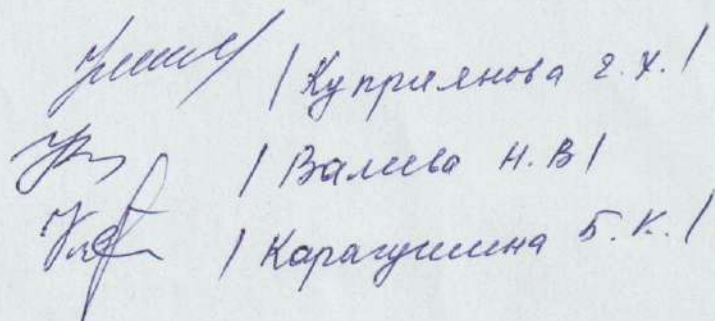 / Куприянова г. Х. /
/ Валеева Н. В /
/ Карагушина Б. К. /